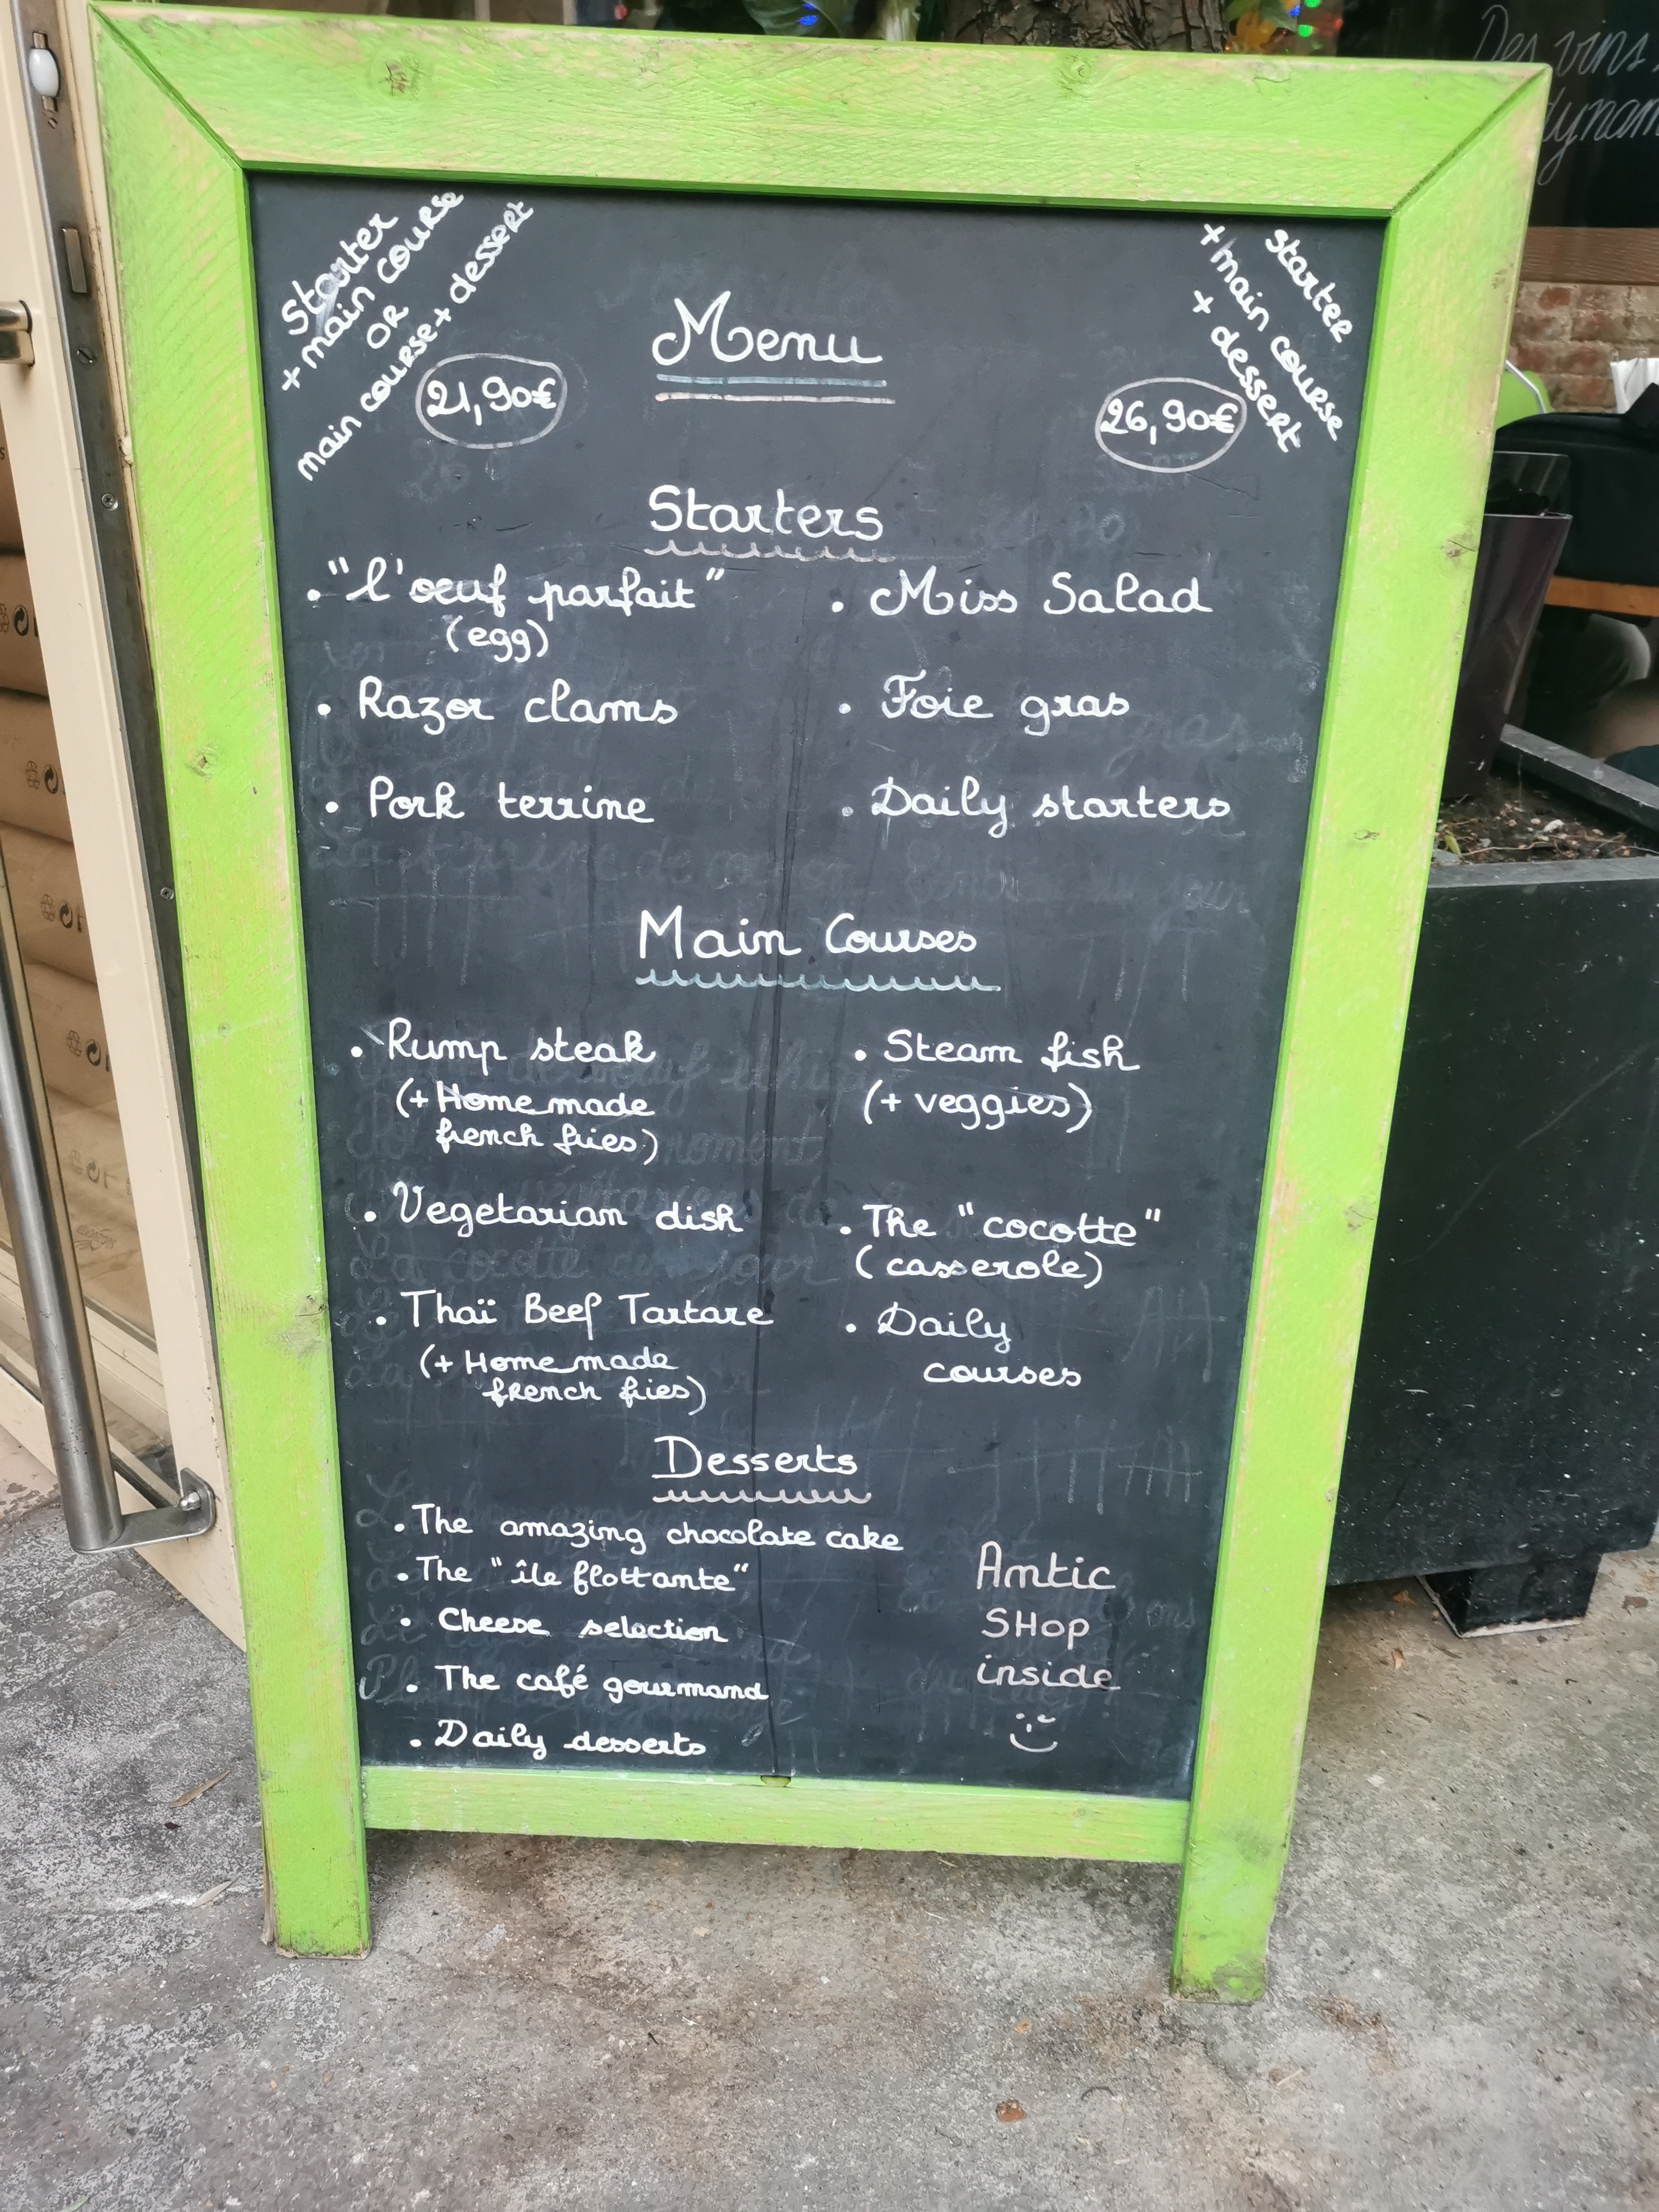 Starter
+ main course
OR
main course + dessert
21,90€
Starter
+ main course
+ dessert
26,90€
Menu
Starters
• "l'œuf parfait"
(egg)
• Razor clams
• Pork terrine
• Miss Salad
• Foie gras
• Daily starters
Main Courses
• Rump steak
(+ Home made
french fries)
• Vegetarian dish
• Thaï Beef Tartare
(+ Home made
french fries)
• Steam fish
(+ veggies)
• The "cocotte"
(casserole)
• Daily
courses
Desserts
• The amazing chocolate cake
• The "île flottante"
• Cheese selection
• The café gourmand
• Daily desserts
Amtic
SHop
inside
Des vins
dynam